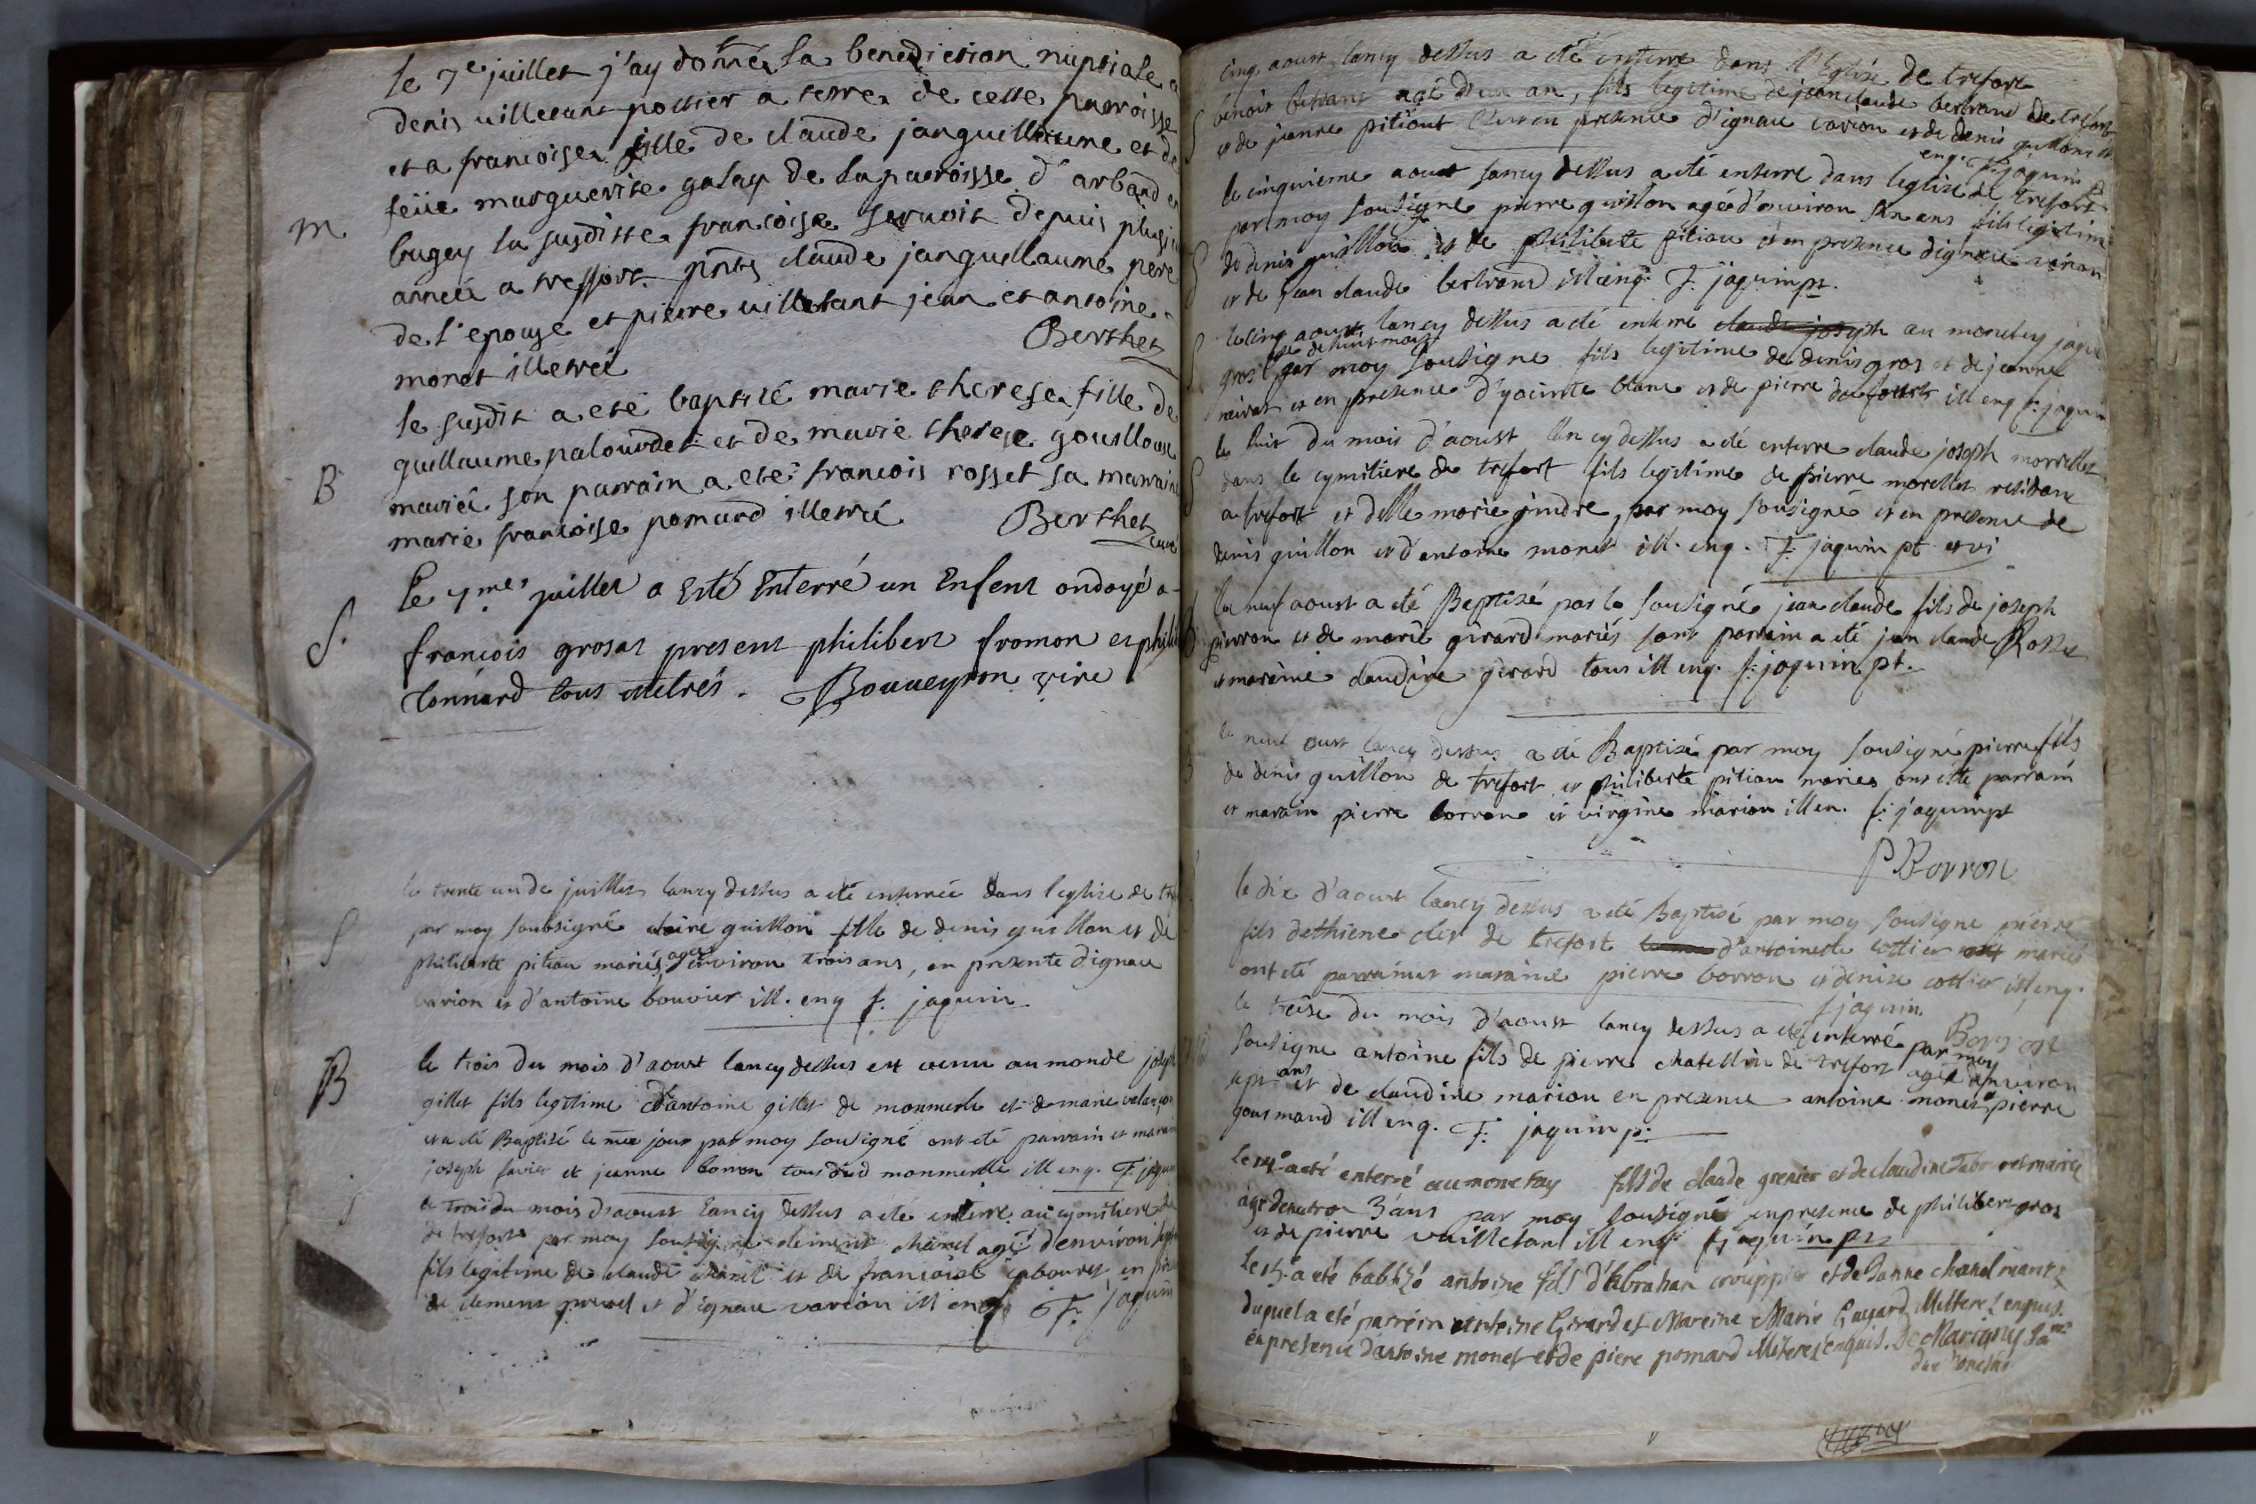 le 7e juillet j'ay donné la benediction nuptiale a
denis villerant pottier a terre de cette parroisse
et a francoise fille de claude janguillaume et de
feüe marguerite galay de la parroisse d'arband en
m
bugey la susditte francoise servoit depuis plusi
année a treffort pnts claude janguillaume pere
de l'epouse et pierre villerant jean et antoine
monet illetré Berthet
le susdit a eté baptisé marie therese fille de
guillaume palourdet et de marie therese gouilloux
B
mariée son parrain a eté francois rosset sa marraine
marie francoise pomard illetré Berthet curé
Le 7me juillet a Esté Enterré un Enfent ondoyé a
S.
francois grosat present philibert fromon et phili
tonnard tous illetrés. Bouveyron vire
le trente un de juillet lancy dessus a eté enterrée dans l'eglise de
S
par moy soubsigné claire guillon fille de denis guillon et de
philiberte pitiou mariés agée environ trois ans, en presente d'ignace
varion et d'antoine bouvier ill. enq f. jaquin
B
le trois du mois d'aoust lancy dessus est venu au monde joseph
gillet fils legitime d'antoine gillet de monmerle et de marie
et a eté Baptisé le mee jour par moy sousigné ont eté parrain et marain
joseph favier et jeanne borron tous deud monmerle ill enq. F. jaquin
le trois du mois d'aoust lancy dessus a ete enterré au cymitiere
S
de trefort par moy sousigné clement chanel agé d'environ
fils legitime de claude chanel et de francoise labouret en
de clement prevel et d'ignace varion ill enq F. jaquin
cinq aoust lancy dessus a eté enterre dans l'Eglise de trefort
S
benoit bertrant agé d'un an, fils legitime de jean claude bertrand de trefort
et de jeanne pitiout en presence d'ignace varion et de denis guillon ill
enq. F. jaquin
le cinquieme aoust lancy dessus a eté enterre dans leglise de trefort
par moy sousigné pierre guillon agé d'environ six ans fils legitime
S
de denis guillon et de philiberte pitiou et en presence dignace varion
et de jean claude bertrand ill enq. F. jaquin pt.
le cinq aoust lancy dessus a eté enterre claude joseph au monetay jaque
S
agé de huit mois
gros par moy sousigne fils legitime de denis gros et de jeanne
et en presence d'yacinte blanc et de pierre ill enq f. jaquin
le huit du mois d'aoust lancy dessus a eté enterre claude joseph morrellet
S
dans le cymitiere de trefort fils legitime de pierre morellet residant
a trefort et delle marie gindre, par moy sousigné et en presence de
denis guillon et d'antoine monet ill. enq. F. jaquin pt et vi
le neuf aoust a eté Baptisé par le sousigné jean claude fils de joseph
pierron et de marie girard mariés sont parrain a eté jean claude Rosset
et maraine claudine girard tous ill enq. f. jaquin pt.
le neuf oust lancy dessus a eté Baptisé par moy sousigné pierre fils
de denis guillon de trefort et philiberte pitiou mariés ont ette parrain
et marain pierre borron et virgine marion ill en. f. jaquin pt
P Borron
le dix d'aoust lancy dessus a eté Baptisé par moy sousigne pierre
fils dethiene clet de trefort d'antoinette cottier mariés
ont eté parrain et maraine pierre borron et denise cottier ill enq.
f jaquin
Borron
le treise du mois d'aoust lancy dessus a eté enterré par moy
sousigne antoine fils de pierre chatellin de trefort agée d'environ
sept ans et de claudine marion en presence antoine monet et pierre
gourmand ill enq. F. jaquin p.
Le 14e a eté enterré au monetay fils de claude grenier et de claudine mariés
agé denviron 3 ans par moy sousigné en presence de philibert gros
et de pierre vuilletan ill enq f jaquin pt
Le 15 a eté babtizé antoine fils d'Abrahan crouppier et de Janne chanel mariez
duquel a eté parrein antoine Girard et Mareine Marie Guyard Illiterez enquis.
en presence d'antoine monet et de piere pomard Illiterez enquis. De Marigny